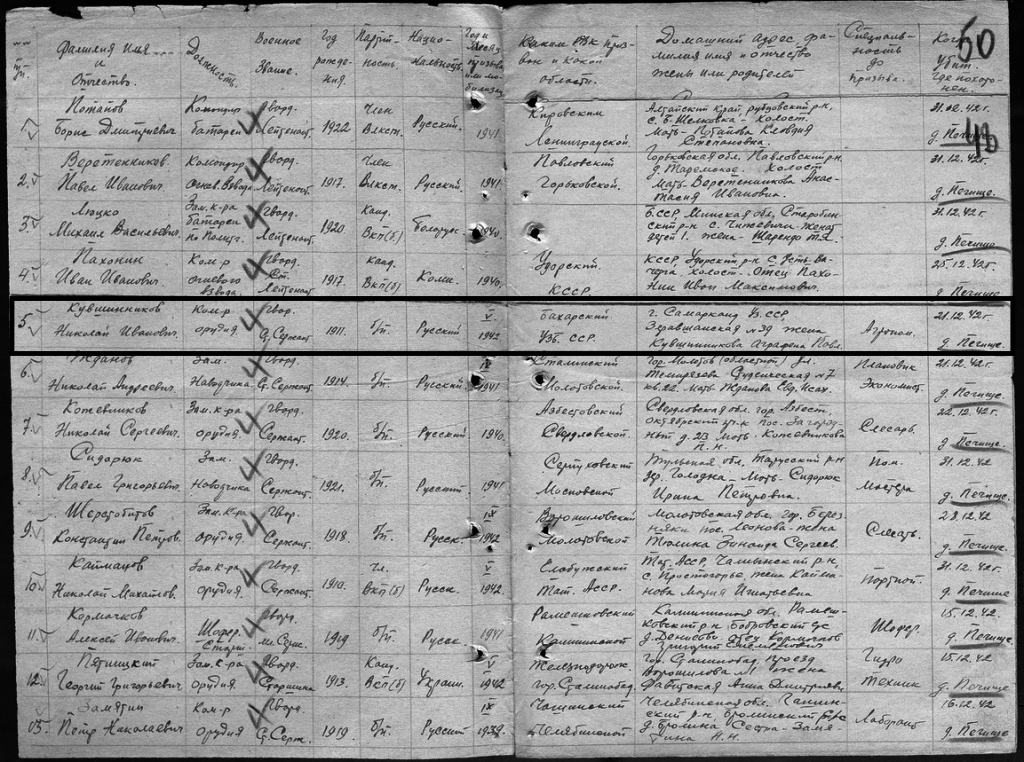 50
№№ п/п.
Фамилия Имя и Отчество
Должность.
Военное Звание.
Год рождения.
Партийность.
Национальность.
Год и месяц призыва
Каким РВК призван и какой области.
Домашний адрес фамилия имя и отчество жены или родителей
Специальность до призыва.
Когда убит. Где похоронен.
1. Потапов Борис Дмитриевич Командир батареи Гвард. Лейтенант 1922 Член Влксм. Русский. 1941 Кировским Ленинградской. Алтайский край, Рубцовский р-н, Холост. Мать- Потапова Клавдия Степановна. 31.12.42г. д. Печище
2. Веретенников. Павел Иванович. Командир огнев. Взвода Гвард. Лейтенант 1917. Член Влксм. Русский. 1941 Павловский Горьковской. Горьковская обл. Павловский р-н. Холост Мать-Веретенникова Анастасия Ивановна. 31.12.42г. д. Печище.
3. Люцко Михаил Васильевич Зам. к-ра батареи по Полит. Гвард. Лейтенант. 1920 Канд. Вкп(б) Белорус 1940. БССР, Минская обл, Старобинский р-н с. Чижевичи-женат детей 1. жена - 31.12.42г. д. Печище
4. Пахонин Иван Иванович. Ком-р огневого взвода. Гвард. Ст. Лейтенант 1917. Канд. Вкп(б) Коми. 1940. Удорский. КССР. КССР Удорский р-н с. Усть-Вачерга холост. - Отец Пахонин Иван Максимович. 25.12.42г. д. Печище
5. Кувшинников Николай Иванович. Ком-р орудия. Гвар. С. Сержант 1911. б/п. Русский V 1942 Бахарский Узб. ССР. г. Самарканд Уз. ССР Зеравшанская №39 жена Кувшинникова Аграфена Павл. Агроном. 21.12.42г. д. Печище.
6. Жданов Николай Андреевич. Зам. Наводчика Гвард. С. Сержант 1914. б/п. Русский IX 1941 Сталинский Молотовской. Гор. Молотов (областной) ул. Тимирязева Студенческая №7 кв. 22. Мать Жданова Плановик Экономист. 21.12.42г. д. Печище.
7. Кожевников Николай Сергеевич. Зам. к-ра орудия. Гвард. Сержант. 1920. б/п. Русский 1940. Азбестовский Свердловской. Свердловская обл. гор. Азбест. Октябрьский р-к пос. Мать-Кожевникова П.Н. Слесарь. 22.12.42г. д. Печище.
8. Сидорюк Павел Григорьевич. Зам. Наводчика Гвард. Сержант. 1921. б/п. Русский. 1941 Серпуховский Московской Тульская обл. Тарусский р-н дер. Мать- Сидорюк Ирина Петровна. Пом. Мастера 31.12.42 д. Печище.
9. Шерстобитов Константин Петров. Зам. к-ра орудия. Гвар. Сержант. 1918 б/п. Русск. IX 1942 Ворошиловский Молотовской Молотовская обл. гор. Березняки пос. Леонова-жена Зинаида Сергеев. Слесарь. 23.12.42 д. Печище.
10. Николай Михайлов. Зам. к-ра орудия Гвард. Сержант. 1910. Чл. Вкп(б) Русск. V 1942 Елабужский Тат. АССР. Тат. АССР, р-н, жена Мария Игнатьевна Портной. 31.12.42 д. Печище
11. Кормачков Алексей Иванович Шофер. Старш. Гвард. мл. Серж. 1919 б/п. Русск. 1941 Раменковский Калининской Калининская обл. Раменковский р-н д. Денисово Отец Шофер 15.12.42. д. Печище.
12. Пятицкий Георгий Григорьевич. Зам. к-ра орудия. Гвард. Старшина 1913. Канд. Вкп(б) Украин. V 1942 Железнодорож. гор. Сталинабад. Гор. Сталинабад проезд Ворошилова жена Анна Дмитриевн. Гидро Техник 15.12.42 д. Печище
13. Замятин Петр Николаевич. Ком-р орудия Гвард. С. Серж. 1919. б/п. Русский IX 1939. Челябинской Челябинская обл. р-н. Сестра- Замятина Н.Н. Лаборант 16.12.42 д. Печище